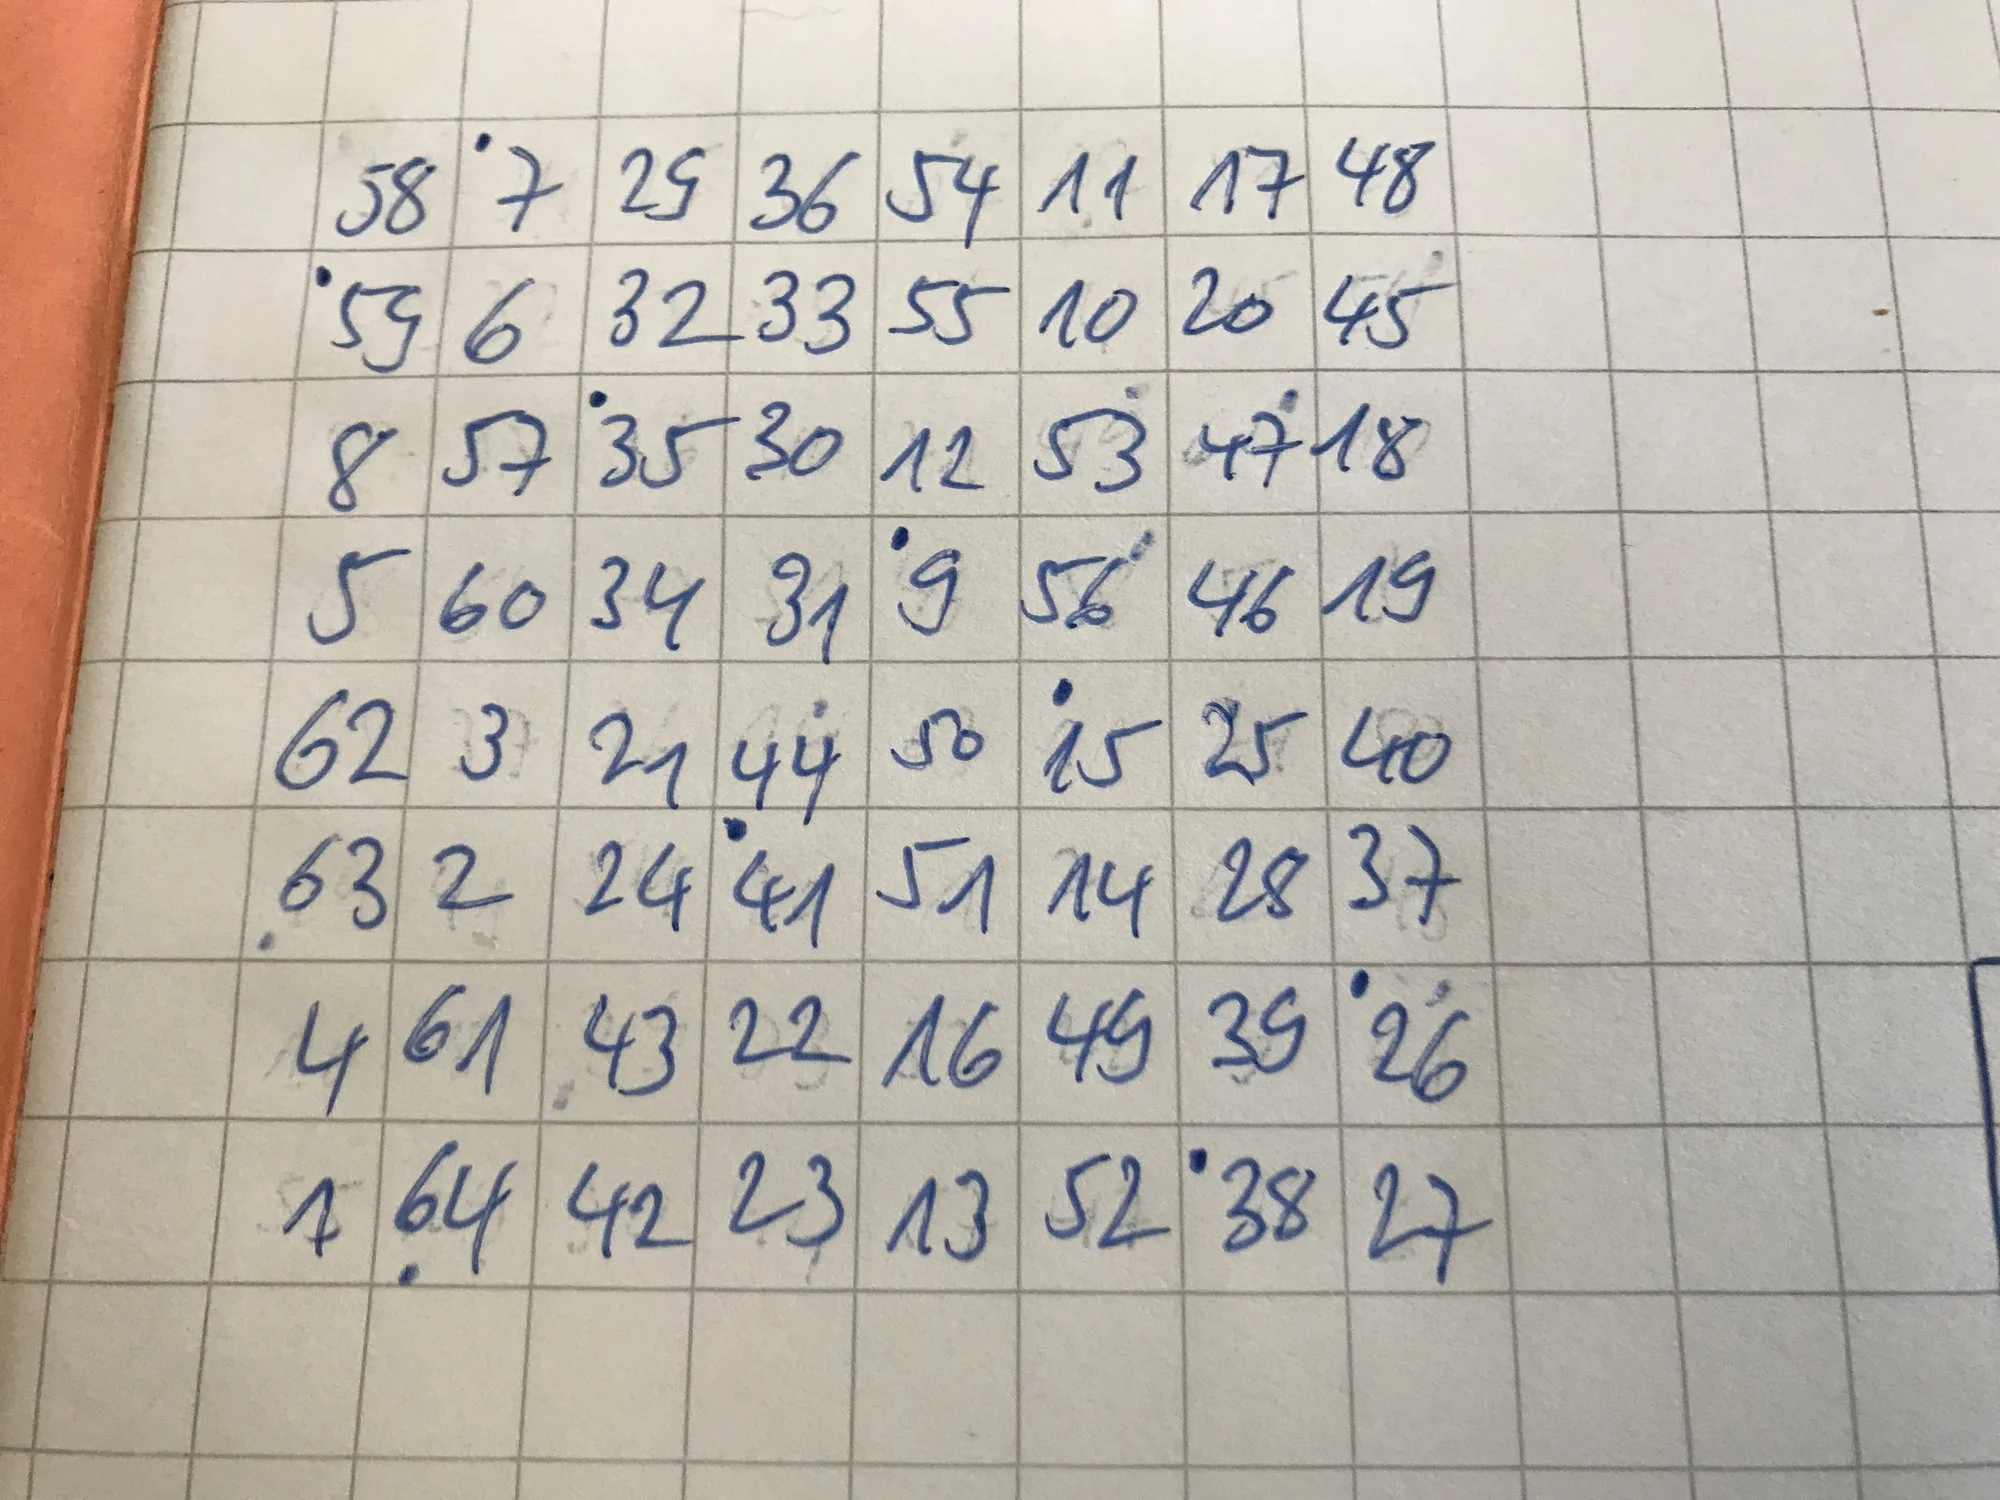 58 7 29 36 54 11 17 48
59 6 32 33 55 10 20 45
8 57 35 30 12 53 47 18
5 60 34 31 9 56 46 19
62 3 21 44 50 15 25 40
63 2 24 41 51 14 28 37
4 61 43 22 16 49 39 26
1 64 42 23 13 52 38 27